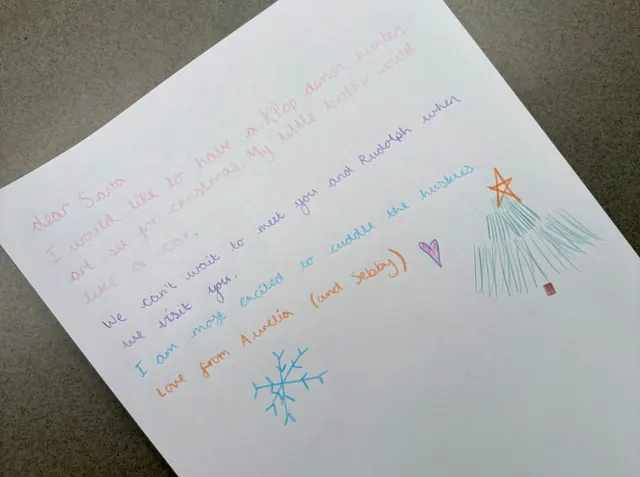 dear Santa
I would like to have a KPop demon hunters
art set for christmas. My little brother would
like a car.
We can't wait to meet you and Rudolph when
we visit you.
I am most excited to cuddle the huskies
Love from Aurelia (and Sebby)